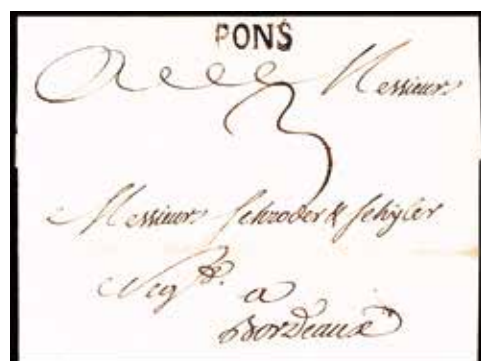 PONS
A Messieurs
3
Messieurs Schroder & Schÿler
Neg.ts
a
Bordeaux